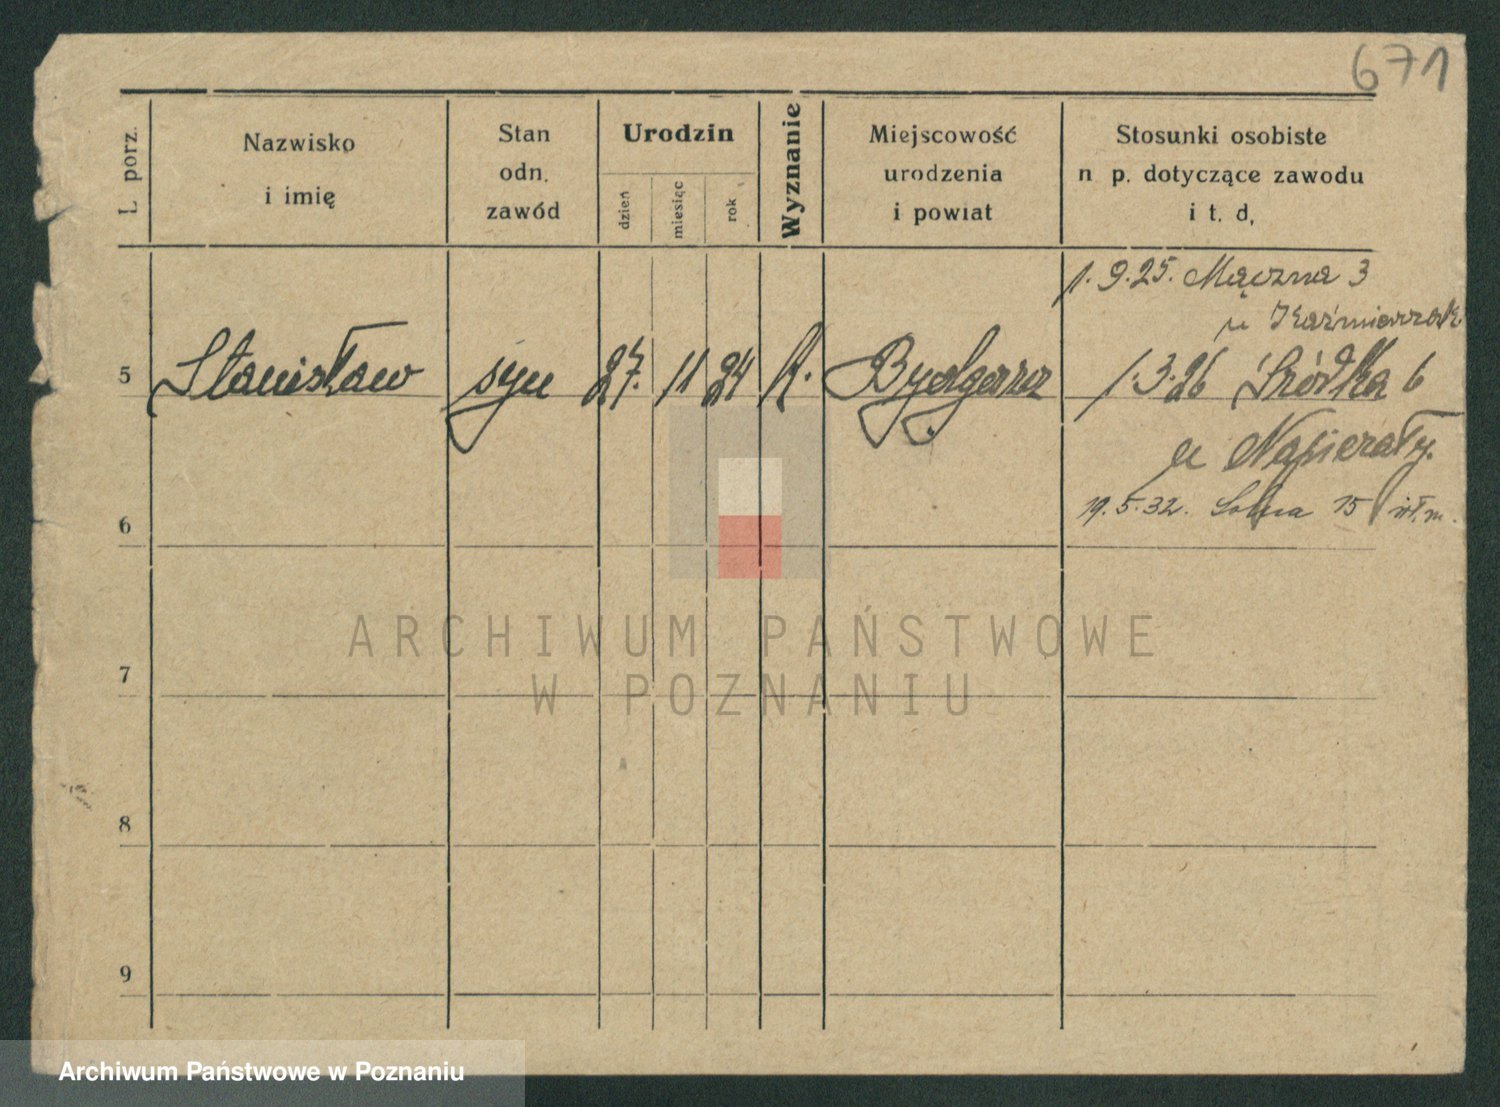 671
L porz.
Nazwisko
i imię
Stan
odn.
zawód
Urodzin
dzień
miesiąc
rok
Wyznanie
Miejscowość
urodzenia
i powiat
Stosunki osobiste
n p. dotyczące zawodu
i t. d,
1.9.25. Mączna 3
u Kaźmierzak
5 Stanisław syn 27. 11 24 K. Bydgoszcz 1.3.26 Śródka 6
u Napierały.
6 19.5.32. Solna 15
7
8
9
ARCHIWUM PAŃSTWOWE
W POZNANIU
Archiwum Państwowe w Poznaniu